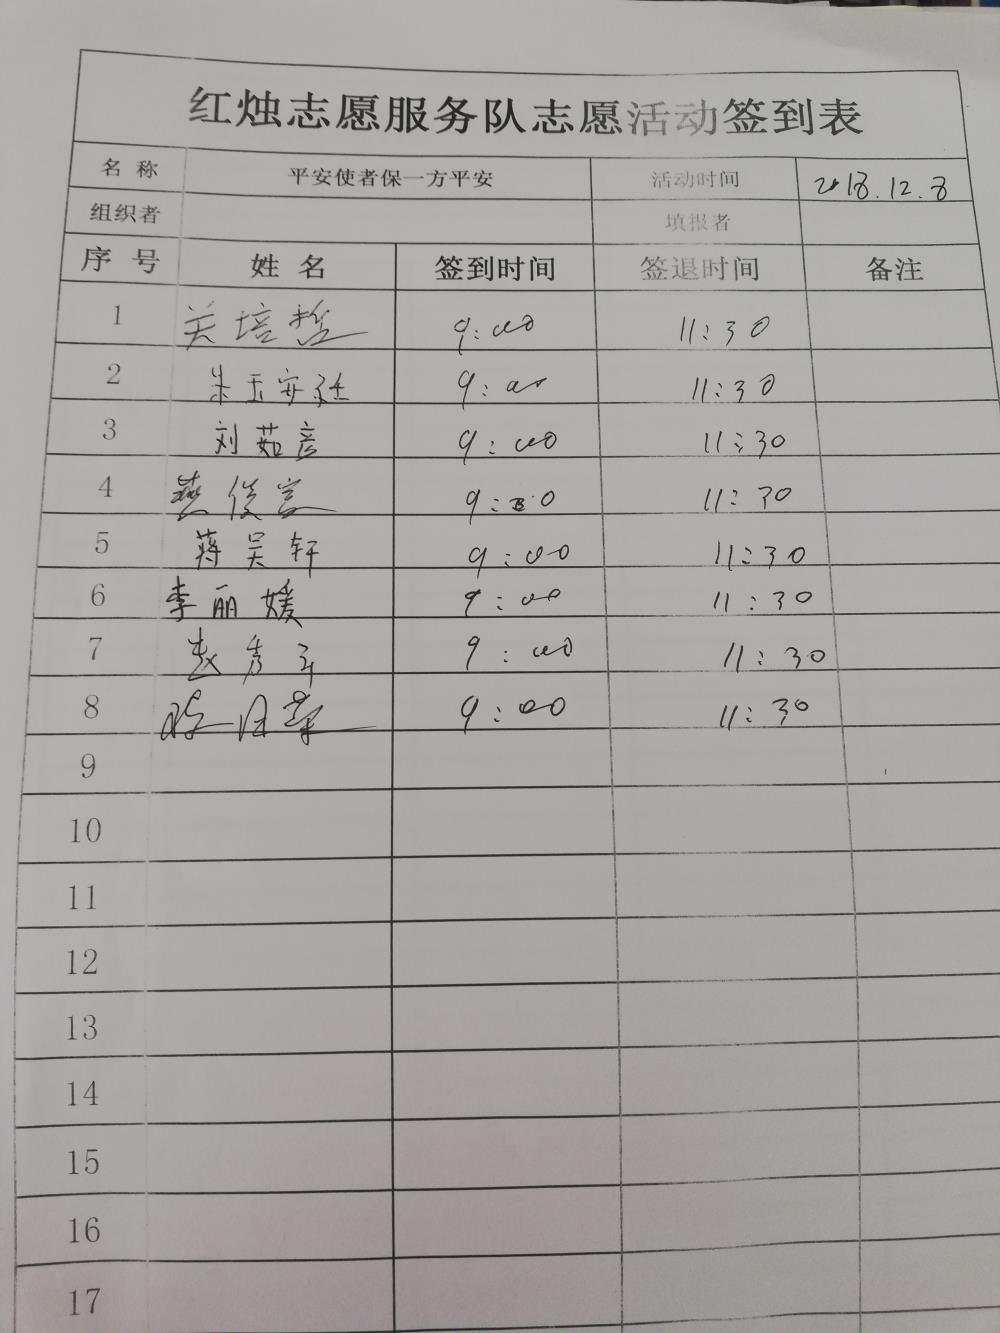 红烛志愿服务队志愿活动签到表
名 称 平安使者保一方平安 活动时间 2018.12.8
组织者 填报者
序 号 姓 名 签到时间 签退时间 备注
1 关培哲 9:00 11:30
2 朱玉安廷 9:00 11:30
3 刘茹彦 9:00 11:30
4 燕俊言 9:00 11:30
5 蒋昊轩 9:00 11:30
6 李丽媛 9:00 11:30
7 赵秀 9:00 11:30
8 9:00 11:30
9
10
11
12
13
14
15
16
17